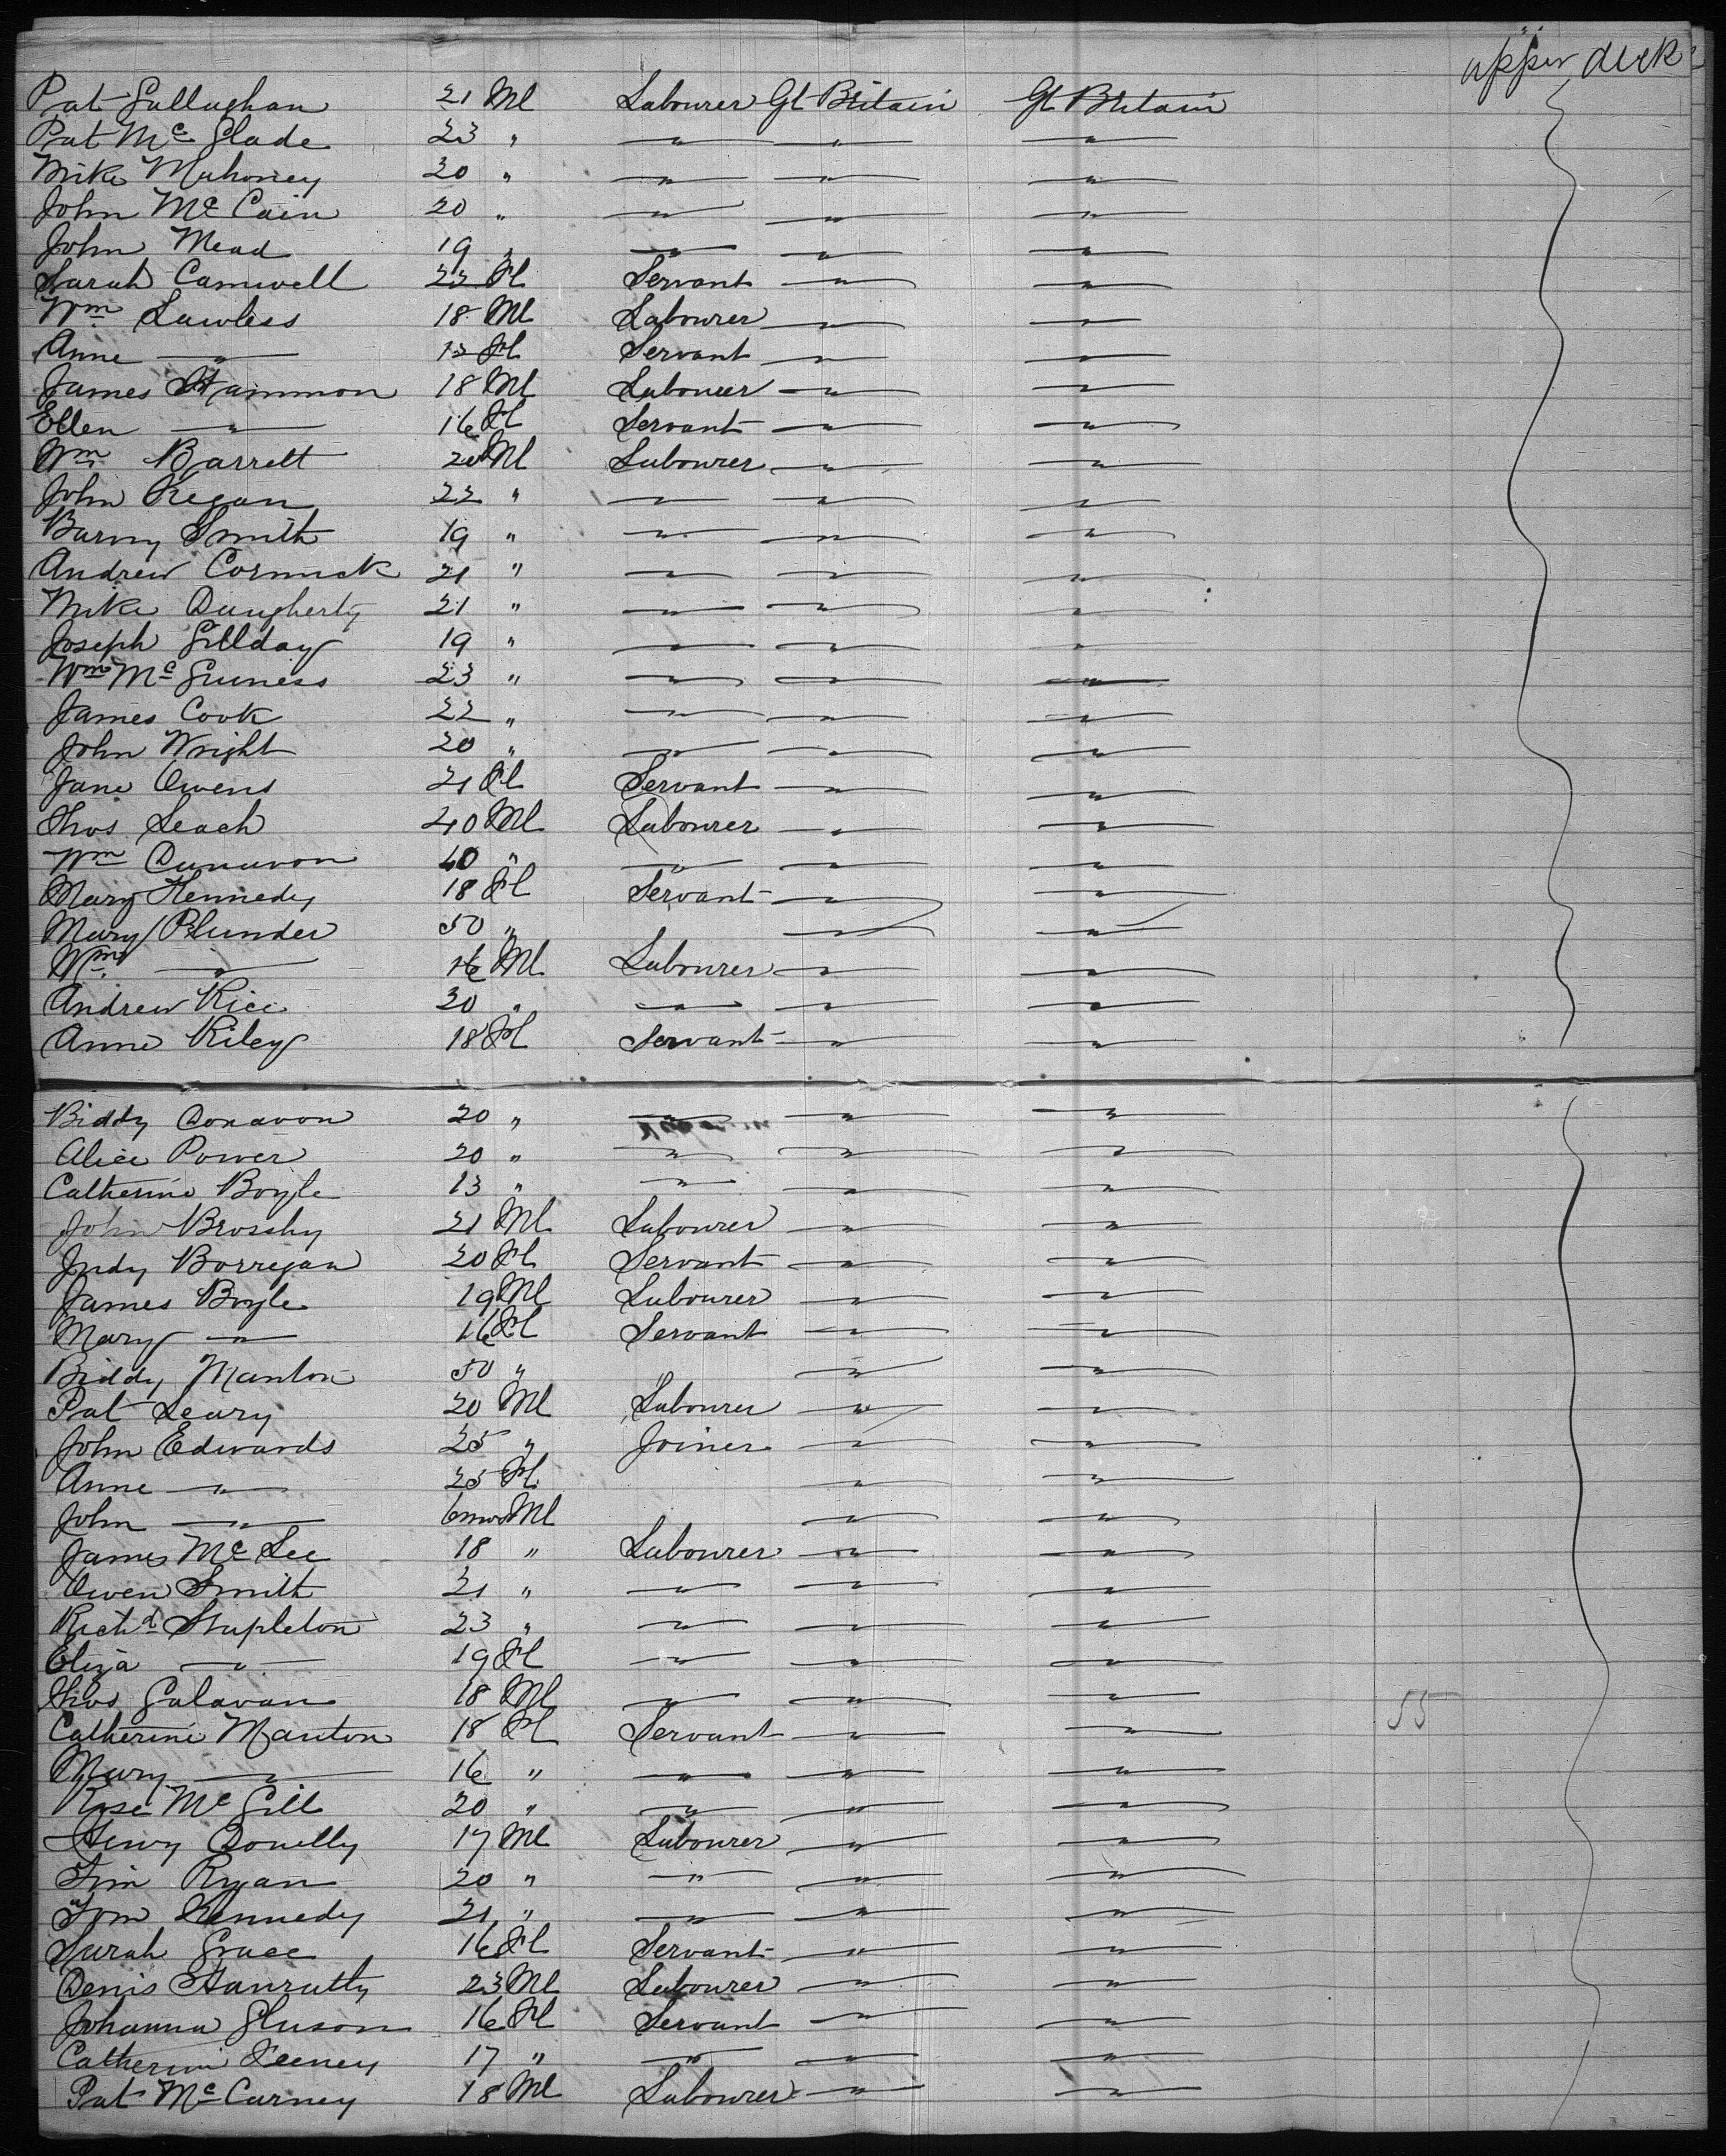 upper deck
Pat Gallaghan 21 Ml Labourer Gt Britain Gt Britain
Pat Mc Glade 23 " " " "
Mike Mahoney 20 " " " "
John Mc Cain 20 " " " "
John Mead 19 " " " "
Sarah Camwell 22 Fl Servant " "
Wm Lawless 18 Ml Labourer " "
Anne " 13 Fl Servant " "
James Hammon 18 Ml Labourer " "
Ellen " 16 Fl Servant " "
Wm Barrett 20 Ml Labourer " "
John Regan 22 " " " "
Barny Smith 19 " " " "
Andrew Cormick 21 " " " "
Mike Daugherty 21 " " " "
Joseph Gillday 19 " " " "
Wm Mc Guiness 23 " " " "
James Cook 22 " " " "
John Wright 20 " " " "
Jane Owens 21 Fl Servant " "
Thos Leach 40 Ml Labourer " "
Wm Dunavon 40 " " " "
Mary Kennedy 18 Fl Servant " "
Mary Plunder 50 " " "
Wm " 16 Ml Labourer " "
Andrew Rice 30 " " " "
Anne Riley 18 Fl Servant " "
Biddy Donavon 20 " " " "
Alice Power 20 " " " "
Catherine Boyle 13 " " " "
John Brosshy 21 Ml Labourer " "
Judy Borregan 20 Fl Servant " "
James Boyle 19 Ml Labourer " "
Mary " 16 Fl Servant " "
Biddy Manton 50 " " "
Pat Leary 20 Ml Labourer " "
John Edwards 25 " Joiner " "
Anne " 25 Fl " "
John " 6mos Ml " "
James Mc Lee 18 " Labourer " "
Owen Smith 21 " " " "
Richd Stapleton 23 " " " "
Eliza " 19 Fl " " "
Thos Galavan 18 Ml " " "
55
Catherine Manton 18 Fl Servant " "
Mary " 16 " " " "
Rose Mc Gill 20 " " " "
Henry Donelly 17 Ml Labourer " "
Tim Ryan 20 " " " "
Tom Kennedy 21 " " " "
Sarah Grace 16 Fl Servant " "
Denis Hanratty 23 Ml Labourer " "
Johanna Gluson 16 Fl Servant " "
Catherine Feeney 17 " " " "
Pat Mc Carney 18 Ml Labourer " "